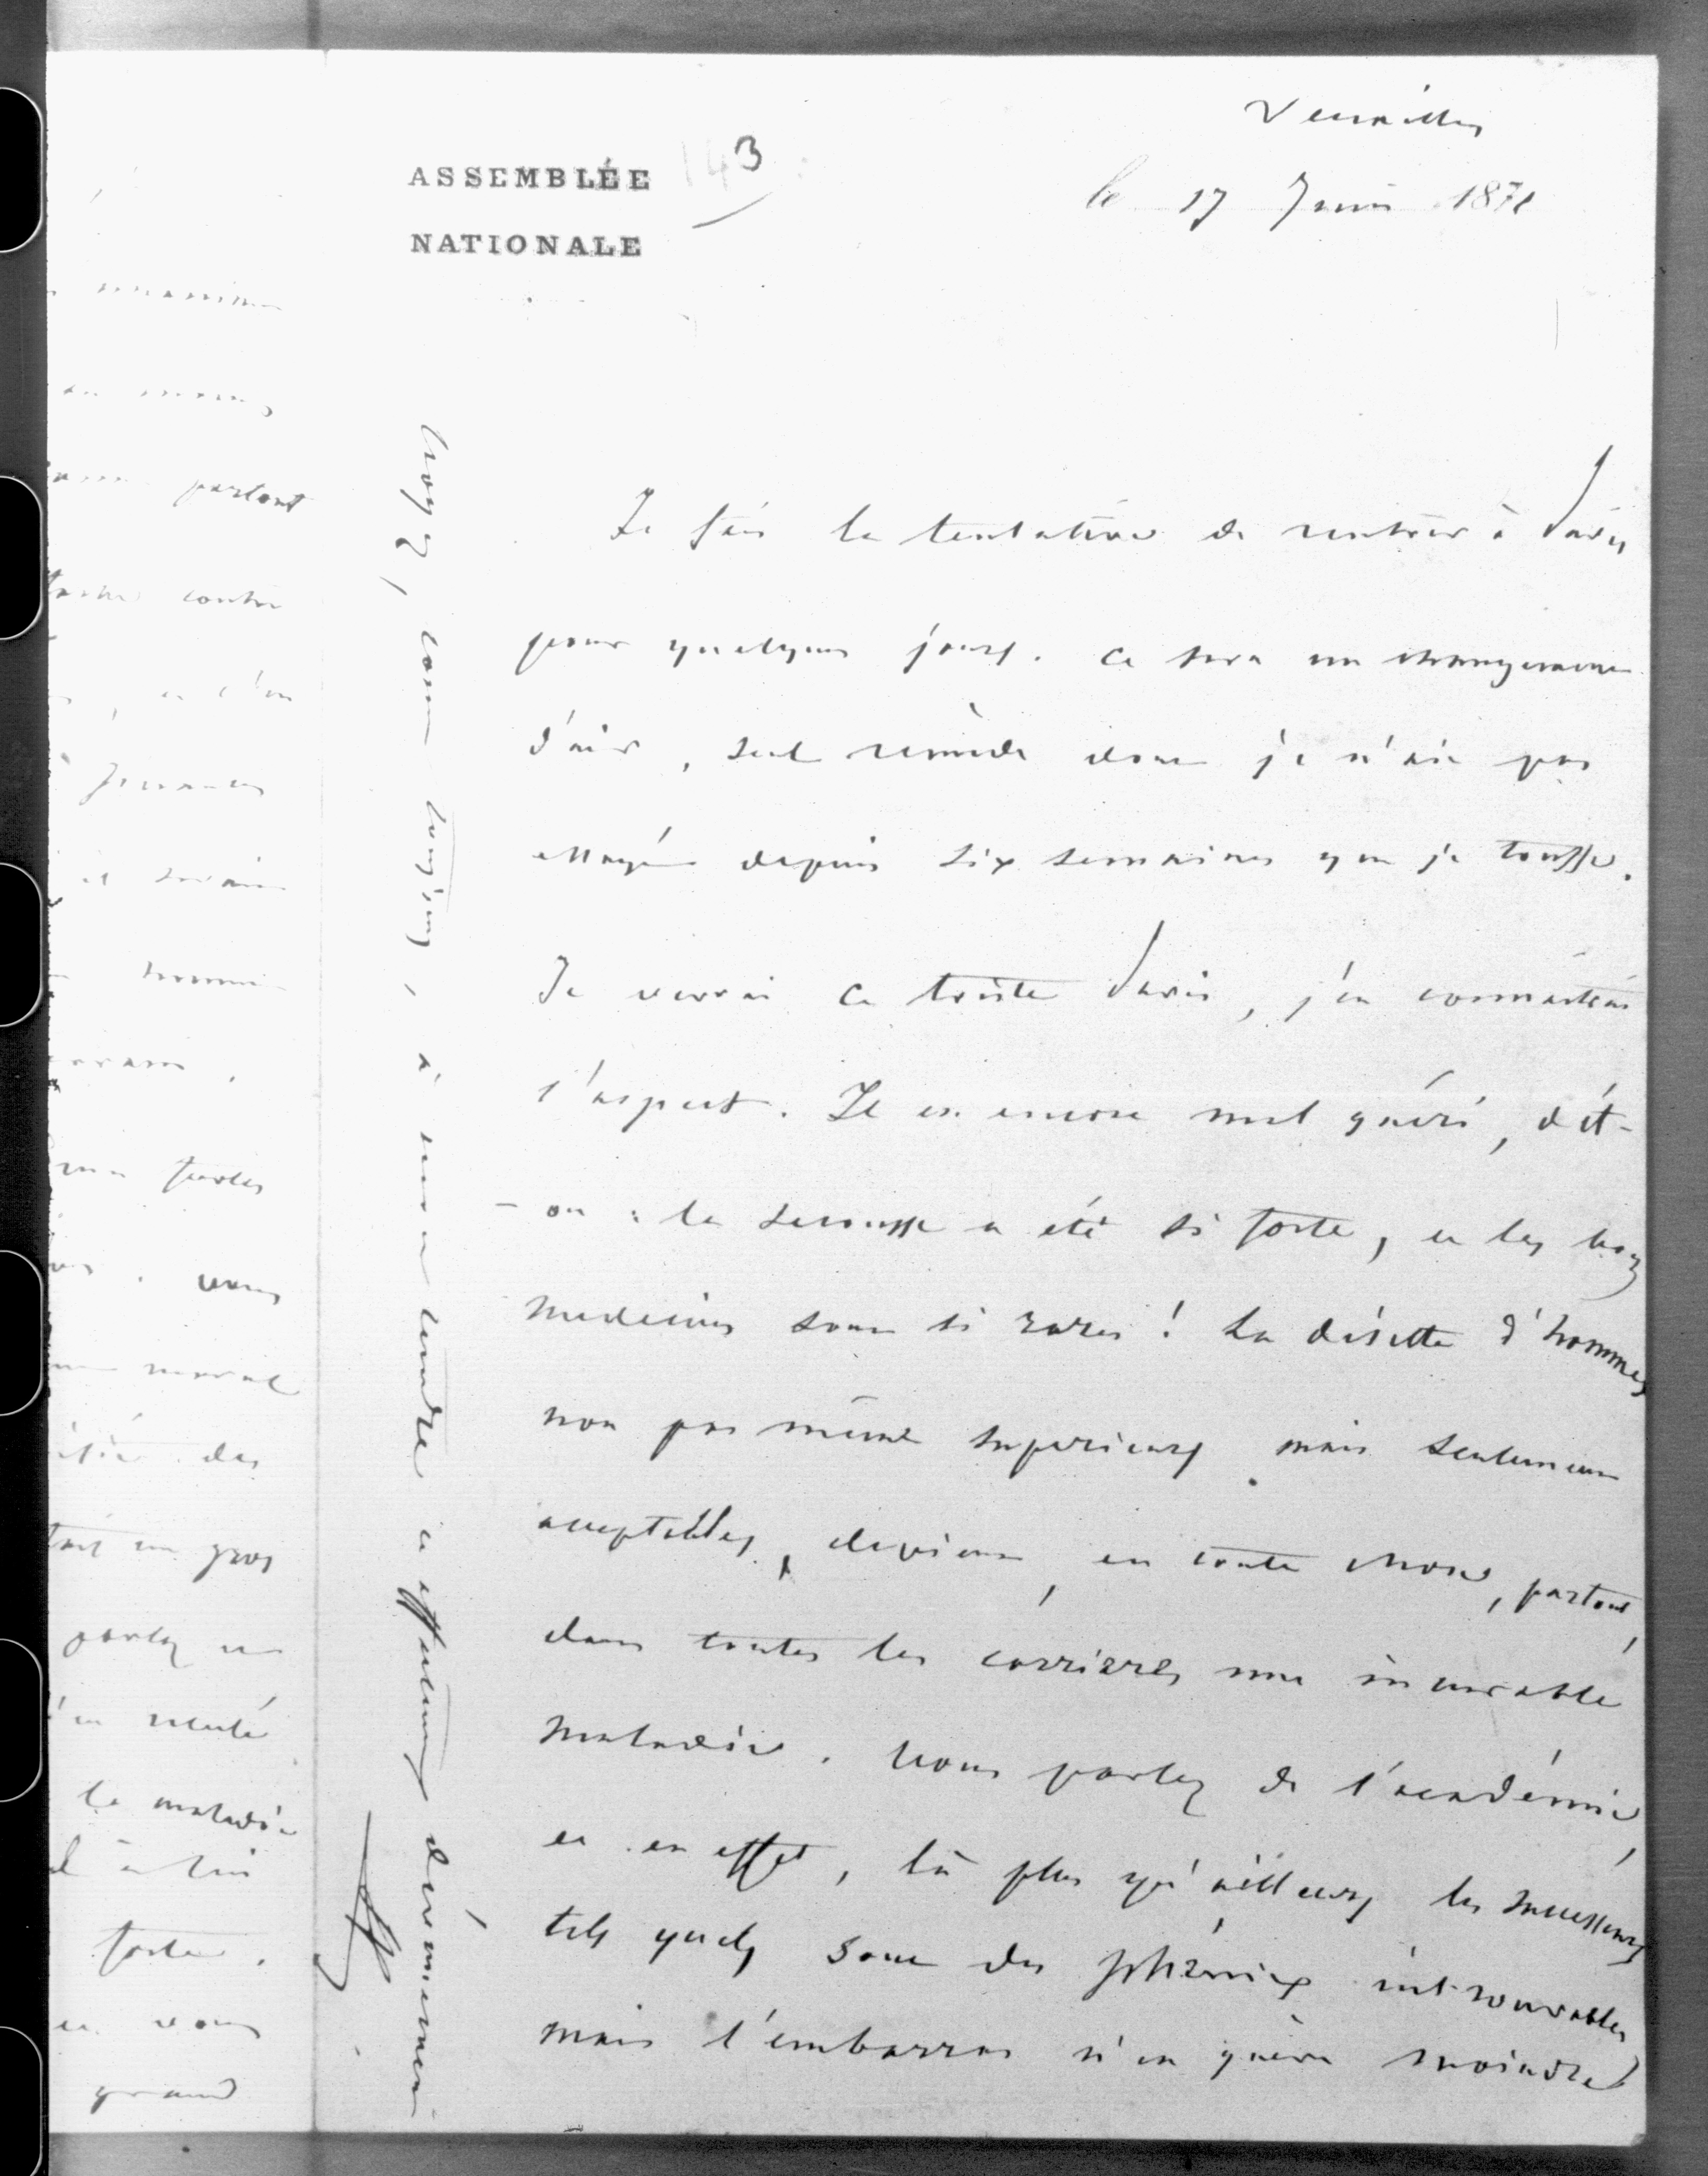 Versailles
ASSEMBLÉE
NATIONALE
143
le 17 Juin 1871
Je fais la tentative de rentrer à Paris
pour quelques jours. ce sera un changement
d'air, seul remède dont je n'aie pas
essayé depuis six semaines que je tousse.
Je verrai ce triste Paris, j'en connaîtrai
l'aspect. Il est encore mal guéri, dit-
-on : la secousse a été si forte, et les bons
medecins sont si rares ! La disette d'hommes
non pas même superieurs mais seulement
acceptables, devient, en toute chose, partout,
dans toutes les carrières une incurable
maladie. Vous parlez de l'académie,
et en effet, là plus qu'ailleurs les successeurs
tels quels sont des phénix introuvables
mais l'embarras n'est guère moindre
croyez, comme toujours, à mon tendre et affectueux dévouement
partout
contre
et l'on
hommes
vous
moral
des
un gros
parlez
la maladie
à lui
forte.
et vous
grand